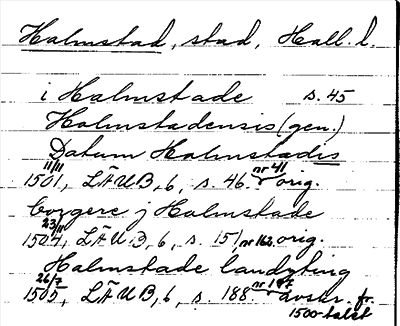 Halmstad, stad, Hall. l.
i Halmstade s. 45
Halmstadensis (gen.)
Datum Halmstadis
11/11 1501, LÄUB, 6, s. 46. nr 41 orig.
borgere j Halmstade
23/11 1504, LÄUB, 6, s. 151 nr 162. orig.
Halmstade landzting
26/7 1505, LÄUB, 6, s. 188 nr 197 avskr. fr. 1500-talet